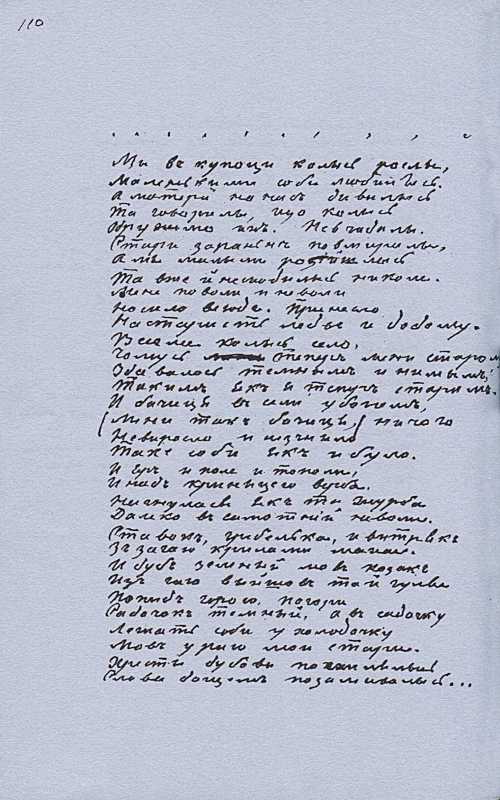 110
Мы вкупоци колысь рослы,
Маленькими соби любились.
А матери на насъ дывились
Та говорылы, що колысь
Одружимо ихъ. Не вгадалы.
Стари зараньи повмиралы,
А мы малыми розійшлись
Та вже й несходылысь николы.
Мене по воли и неволи
Носыло всюды. Принесло
На старисть лодве и додому.
Веселе колысь село,
Чомусь теперь мени старому
Здавалось темнымъ и нимымъ,
Такимъ якъ я теперь старымъ.
И бачиця в сели убогимъ,
(Мини такъ бачиця) ничого
Не виросло и не зныло
Таке соби якъ и було.
И яръ и поле и тополи,
И надъ криныцею верба.
Нагнулася якъ та журба
Далеко в самотній неволи.
Ставокъ, гребелька, и витрякъ
З за гаю крылами махае.
И дубъ зеленый мовъ козакъ
Изъ гаю выйшовъ тай гуля
Попидъ горою. По гори
Садочокъ темный, а въ садочку
Лежать соби у холодочку
Мовъ у раю мои стари.
Хресты дубови похилылысь
Слова дощемъ позамывалысь...